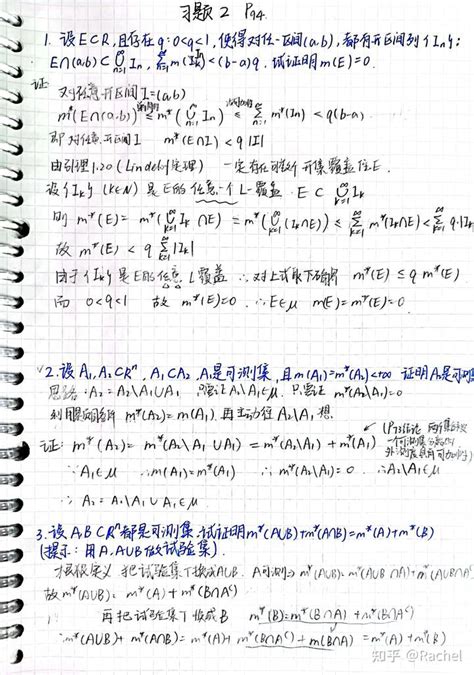 习题 2 P94.
1. 设E⊂R, 且存在q: 0<q<1, 使得对任一区间(a,b), 都有开区间列{In}:
E∩(a,b)⊂⋃_{n=1}^∞ In, ∑_{n=1}^∞ m(In)<(b-a)q. 试证明m(E)=0.
证: 对任意开区间I=(a,b)
m*(E∩(a,b)) ≤ m*(⋃_{n=1}^∞ In) ≤ ∑_{n=1}^∞ m*(In) < q(b-a)
即对任意开区间I m*(E∩I) < q|I|
由引理1.20 (Lindelöf定理) 一定有可数个开集覆盖住E.
设{Ik} (k∈N) 是E的任意一个L-覆盖. E⊂⋃_{k=1}^∞ Ik
则 m*(E) = m*(⋃_{k=1}^∞ Ik∩E) = m*(⋃_{k=1}^∞ (Ik∩E)) ≤ ∑_{k=1}^∞ m*(Ik∩E) < ∑_{k=1}^∞ q·|Ik|
故 m*(E) < q∑_{k=1}^∞ |Ik|
由于{Ik}是E的任意L覆盖 ∴对上式取下确界 m*(E) ≤ q m*(E)
而 0<q<1 故 m*(E)=0 ∴E∈μ m(E)=m*(E)=0
2. 设A1, A2⊂R^n, A1⊂A2, A1是可测集, 且m(A1)=m*(A2)<+∞ 证明A2是可测集
思路: A2=A2\A1∪A1 需证A2\A1∈μ, 只需证 m*(A2\A1)=0
利用 m*(A2)=m(A1) 再主动往A2\A1想.
证: m*(A2) = m*(A2\A1∪A1) = m*(A2\A1)+m*(A1)
∵A1∈μ ∴m(A1)=m*(A1) ∴m*(A2\A1)=0 ∴A2\A1∈μ
∴A2=A2\A1∪A1∈μ
3. 设A,B⊂R^n都是可测集, 试证明m*(A∪B)+m*(A∩B)=m*(A)+m*(B)
(提示: 用A, A∪B做试验集).
根据定义 把试验集T换成A∪B. A可测⇒m*(A∪B)=m*(A∪B∩A)+m*(A∪B∩A^c)
故m*(A∪B)=m*(A)+m*(B∩A^c)
再把试验集T换成B m*(B)=m*(B∩A)+m*(B∩A^c)
∴m*(A∪B)+m*(A∩B)=m*(A)+m*(B∩A^c)+m(B∩A)=m*(A)+m*(B)
知乎 @Rachel